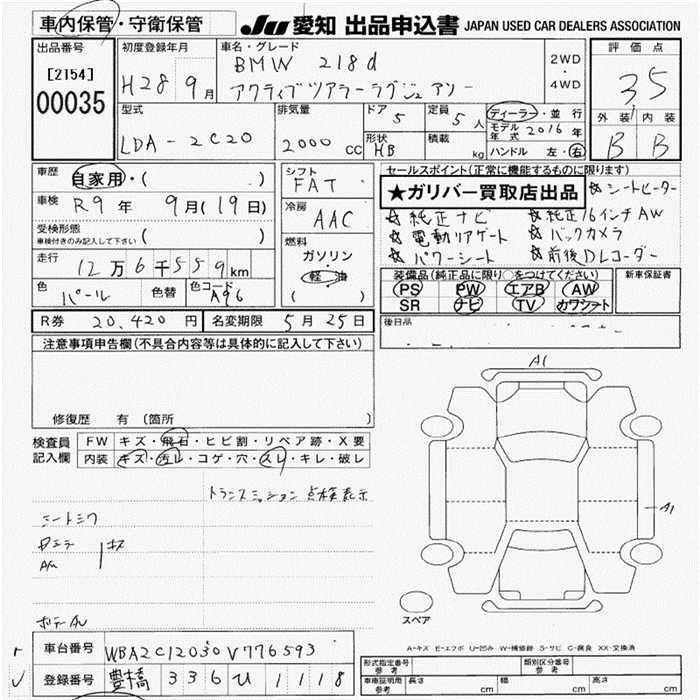 車内保管・守衛保管
JU 愛知 出品申込書 JAPAN USED CAR DEALERS ASSOCIATION
出品番号
[2154]
00035
初度登録年月
H28 9月
車名・グレード
BMW 218d
アクティブツアラーラグジュアリー
2WD
・
4WD
評価点
3.5
外装 内装
B B
型式
LDA-2C20
排気量
2000 cc
ドア
5
定員
5人
形状
HB
積載
kg
ディーラー・並行
モデル年式 2016年
ハンドル 左・右
車歴
自家用・( )
車検
R9年 9月(19日)
受検形態
車検付きのみ記入して下さい ( )
走行
12万6千559km
色
パール
色替
色コード
A96
シフト
FAT
冷房
AAC
燃料
ガソリン
軽油
( )
セールスポイント(正常に機能するものに限ります)
★ガリバー買取店出品 ☆シートヒーター
☆純正ナビ ☆純正16インチAW
☆電動リアゲート ☆バックカメラ
☆パワーシート ☆前後DLコーダー
装備品(純正品に限り○をつけてください)
PS PW エアB AW
SR ナビ TV カワシート
新車保証書
後日品
R券 20,420円 名変期限 5月25日
注意事項申告欄(不具合内容等は具体的に記入して下さい)
修復歴 有 (箇所 )
検査員記入欄
FW キズ・飛石・ヒビ割・リペア跡・X要
内装 キズ・汚レ・コゲ・穴・スレ・キレ・破レ
トランスミッション 点検表示
キズ
A1
A1
スペア
A-キズ E-エクボ U-凹み W-補修跡 S-サビ C-腐食 XX-交換済
車台番号 WBA2C12030V776593
登録番号 豊橋 336 ひ 1118
形式指定番号
参考
類別区分番号
参考
車庫証明用
参考
長さ cm
幅 cm
高さ cm